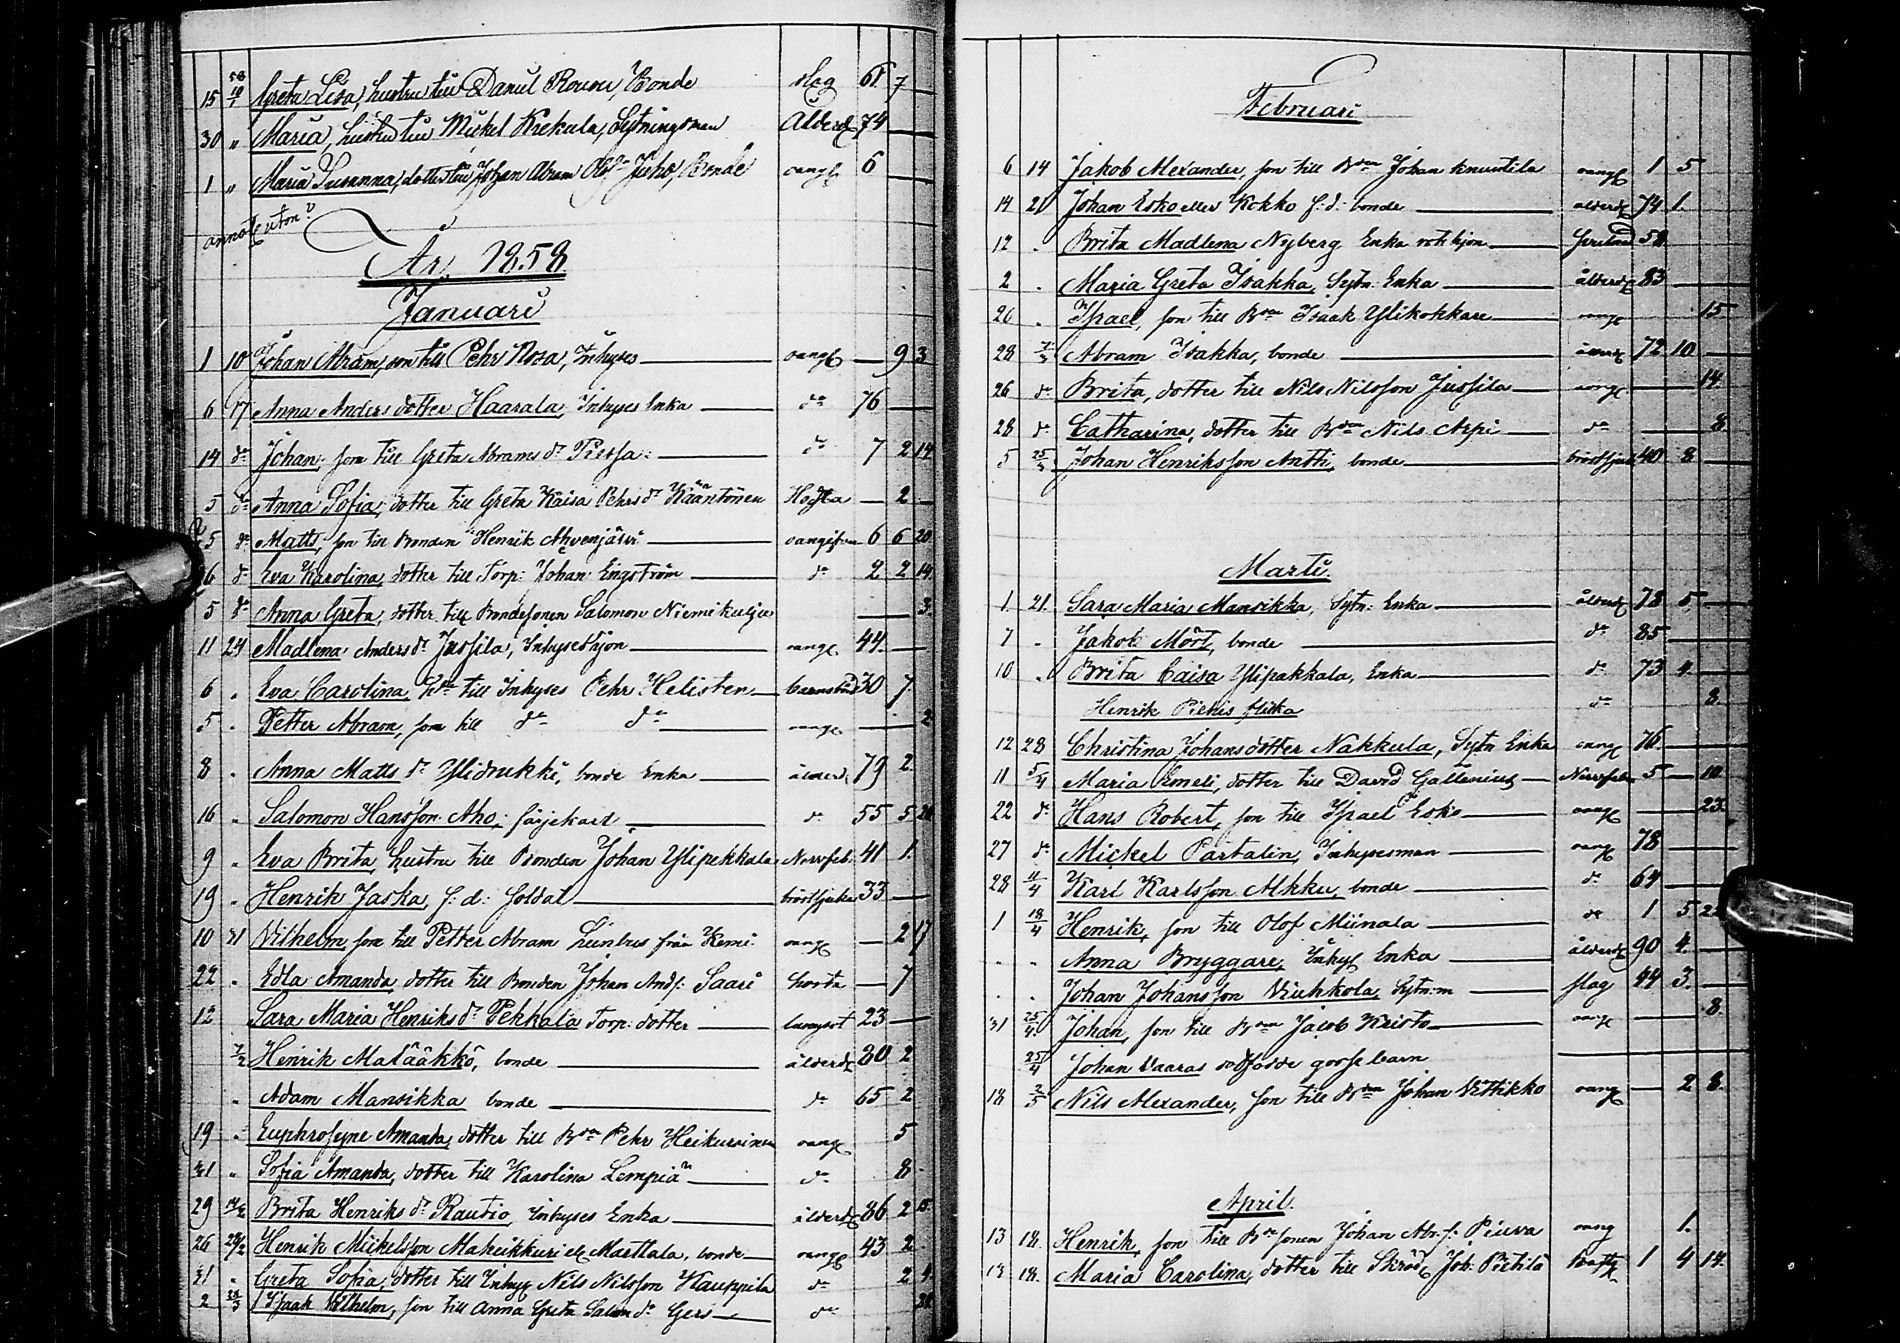 15 58 18/1 Greta Lisa, hustru till Daniel Rousu, Bonde slag 61 7 —
30 " Maria, hustru till Mickel Krekula, Sytningsman Ålderd. 74 —
1 " Maria Susanna, dotter till Johan Abram Olofss. Juho, Bonde oang. 6 —
År 1858
Januari
1 10 Johan Abram, son till Pehr Rosa, Inhyses — oang. — 9 3
6 17 Anna Anders dotter Haarala, Inhyses Enka — do 76 —
14 do Johan, son till Greta Abrams dr Piessa — do 7 2 14
5 do Anna Sofia, dotter till Greta Kaisa Pehrs dr Kääntönen Hosta — 2 —
5 do Matts, son till Bonden Henrik Ahvenjärvi — oangifven 6 6 20
6 do Eva Karolina, dotter till Torp. Johan Engström — do 2 2 14
5 do Anna Greta, dotter till Bondesonen Salomon Niemikulja — 3
11 24 Madlena Anders dr Jussila, Inhyseshjon — oang. 44 —
6 . Eva Carolina, Hu till Inhyses Pehr Helisten — barnsbörd 30 7
5 . Petter Abram, son till do do — oang. — 2
8 . Anna Matts dr Ylidrukki, bonde Enka — ålderd. 79 2
16 . Salomon Hansson Aho, färjekarl — do 55 5 20
9 . Eva Brita, hustru till Bonden Johan Ylipekkala Nervfeb. 41 1.
19 . Henrik Jaska, f: d: Soldat — bröstsjuka 33 —
10 31 Vilhelm, son till Petter Abram Liinhus från Kemi oang. — 2 17
22 . Edla Amanda dotter till Bonden Johan Ands. Saari hosta — 7
12 Sara Maria Henriks dr Pekkala Torp. dotter — lungsot 23 —
7/2 Henrik Matäákkö, bonde — ålderd. 80 2
. Adam Mansikka bonde — do 65 2
19 . Euphrosyne Amanda, dotter till Bden Pehr Heikurainen oang. 5
31 " Sofia Amanda, dotter till Karolina Lempiä — do 8
29 14/2 Brita Henriks dr Rautio, Inhyses Enka — ålderd. 86 2 15
26 28/2 Henrik Mickelsson Makeikkuri elr Marttala, bonde — oang. 43 2
31 " Greta Sofia, dotter till Inhys. Nils Nilsson Kauppila do 2 4
2 28/3 Isaak Vilhelm, son till Anna Greta Salom. dr Gers — do
Februari
6 14 Jakob Alexander, son till Bden Johan Knuutila oang. 1 5
14 21 Johan Esko eller Kokko f: d: bonde — ålderd. 74 1.
12 . Brita Madlena Nyberg Enka rotehjon — 58
2 . Maria Greta Isakka, Sytn. Enka — ålderd. 83 —
20 . Isael, son till Bden Isaak Ylikokkare — oang. 15
28 7/3 Abram Isakka, bonde — ålderd. 72 10 —
26 do Brita, dotter till Nils Nilsson Jussila — oang. — 14
28 do Catharina, dotter till Bden Nils Arpi — do — 8.
5 25/3 Johan Henriksson Antti, bonde — bröstsjuk. 40 8 —
Marti.
1 21. Sara Maria Mansikka, Sytn: Enka — ålderd. 78 5 —
7 . Jakob Mört, bonde — do 85 —
10 . Brita Caisa Ylipakkala, Enka — do 73 4 —
Henrik Pietis flicka do 8.
12 28 Christina Johansdotter Nakkula, Sytn Enka oang. 76 —
11 5/4 Maria Emeli, dotter till David Gallenius — Nervfeb. 5 — 10
22 do Hans Robert, son till Israel Esko — oang. — 23.
27 do Mickel Partalin, Inhysesman — oang. 78 —
28 11/4 Karl Karlsson Alkku, bonde — do 64 —
1 18/4 Henrik, son till Olof Miinala — do 1 5 22
. . Anna Bryggare, Inhys. Enka — ålderd. 90 4 —
. . Johan Johansson Viuhkola, Sytn:m — slag 44 3 —
31 25/4 Johan, son till Bden Jacob Kristo — oang. — 8.
25/4 Johan Vaaras dödfödde gossebarn —
18 2/5 Nils Alexander, son till Bden Johan Vittikko oang. — 2 8.
April.
13 18. Henrik, son till Bdesonen Johan Abr. s. Piuva oang 1.
13 18. Maria Carolina, dotter till Skrädd. Joh. Pietilä 1 4 14.